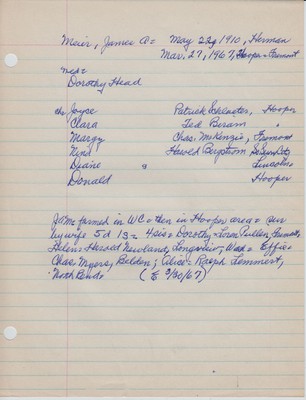 Meier, James A = May 22, 1910, Herman
Mar. 27, 1967, Hooper = Fremont
wed =
Dorothy Head
ch Joyce Patrick Schlueter, Hooper
Clara Ted Beram "
Margy Chas. McKenzie, Fremont
Nina Harold Bergstrom
Diane " Lincoln
Donald Hooper
Jame farmed in WC = then in Hooper area = sur
by wife 5 d 1 s = 4 sis = Dorothy = Loren Pullen,
Helen = Harold Newland, Longview, Wash = Effie =
Chas. Myers, Belden; Alice = Ralph Lemmert,
North Bend = (E 3/30/67)